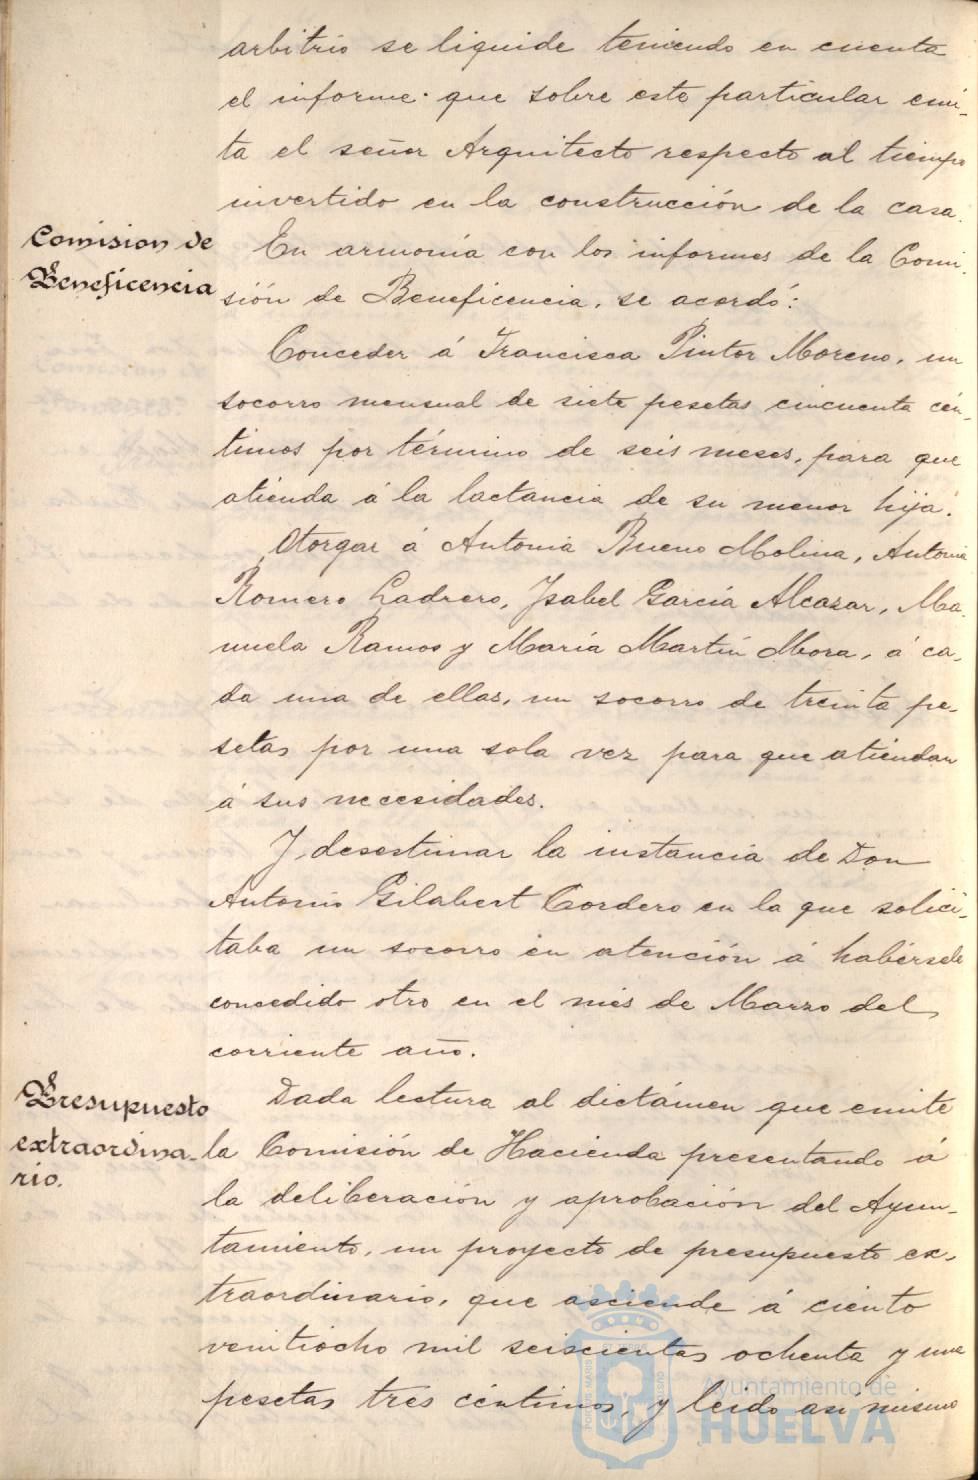 arbitrio se liquide teniendo en cuenta
el informe que sobre este particular emi-
ta el señor Arquitecto respecto al tiempo
invertido en la construcción de la casa.
Comision de
Beneficencia
En armonía con los informes de la Comi-
sión de Beneficencia, se acordó:
Conceder á Francisca Pintor Moreno, un
socorro mensual de siete pesetas cincuenta cén-
timos por término de seis meses, para que
atienda á la lactancia de su menor hija.
Otorgar á Antonia Bueno Molina, Antonia
Romero Ladrero, Isabel García Alcazar, Ma-
nuela Ramos y María Martín Mora, á ca-
da una de ellas, un socorro de treinta pe-
setas por una sola vez para que atiendan
á sus necesidades.
Y desestimar la instancia de Don
Antonio Gilabert Cordero en la que solici-
taba un socorro en atención á habérsele
concedido otro en el mes de Marzo del
corriente año.
Presupuesto
extraordina-
rio.
Dada lectura al dictámen que emite
la Comisión de Hacienda presentando á
la deliberación y aprobación del Ayun-
tamiento, un proyecto de presupuesto ex-
traordinario, que asciende á ciento
veintiocho mil seiscientas ochenta y una
pesetas tres céntimos, y leido así mismo
Ayuntamiento de
HUELVA